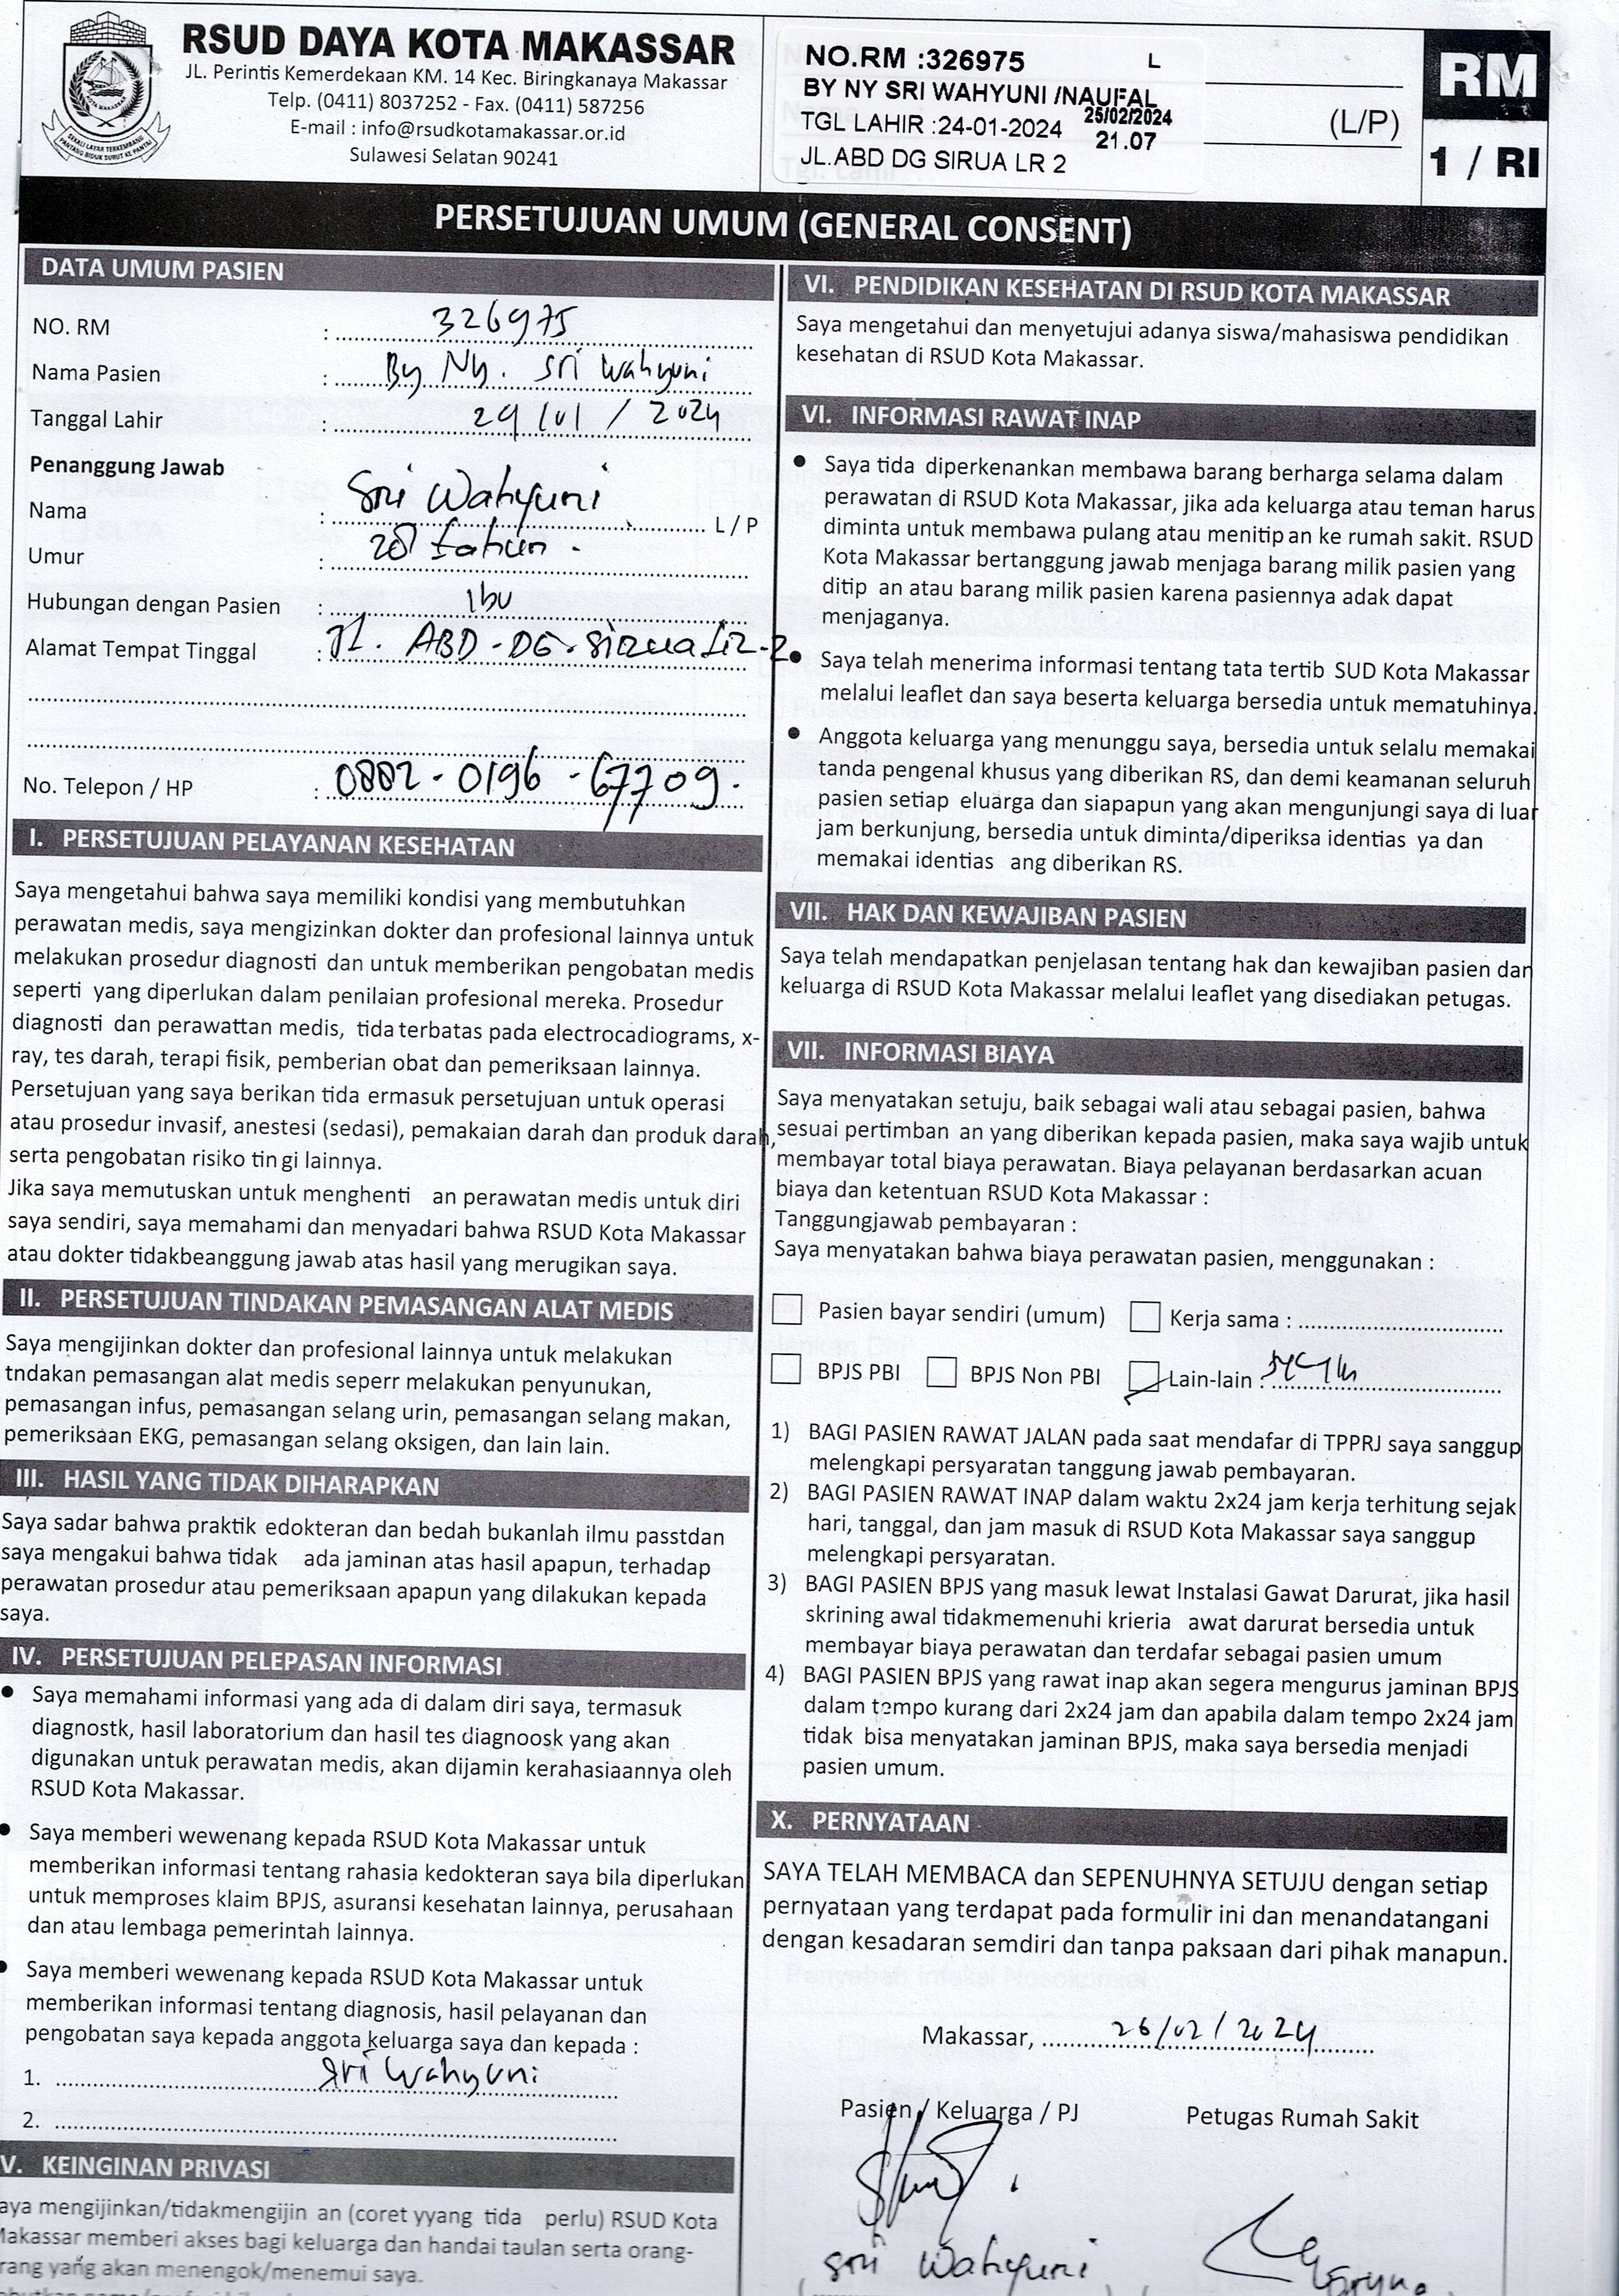 RSUD DAYA KOTA MAKASSAR
JL. Perintis Kemerdekaan KM. 14 Kec. Biringkanaya Makassar
Telp. (0411) 8037252 - Fax. (0411) 587256
E-mail : info@rsudkotamakassar.or.id
Sulawesi Selatan 90241
NO.RM :326975 L
BY NY SRI WAHYUNI /NAUFAL
25/02/2024
TGL LAHIR :24-01-2024
21.07
JL.ABD DG SIRUA LR 2
(L/P)
RM
1 / RI
PERSETUJUAN UMUM (GENERAL CONSENT)
DATA UMUM PASIEN
NO. RM : 326975
Nama Pasien : By Ny. Sri Wahyuni
Tanggal Lahir : 24 /01 / 2024
Penanggung Jawab
Nama : Sri Wahyuni L / P
Umur : 28 tahun.
Hubungan dengan Pasien : Ibu
Alamat Tempat Tinggal : Jl. ABD-DG-Sirua Lr-2
No. Telepon / HP : 0882-0196-67709.
I. PERSETUJUAN PELAYANAN KESEHATAN
Saya mengetahui bahwa saya memiliki kondisi yang membutuhkan
perawatan medis, saya mengizinkan dokter dan profesional lainnya untuk
melakukan prosedur diagnosti dan untuk memberikan pengobatan medis
seperti yang diperlukan dalam penilaian profesional mereka. Prosedur
diagnosti dan perawattan medis, tida terbatas pada electrocadiograms, x-
ray, tes darah, terapi fisik, pemberian obat dan pemeriksaan lainnya.
Persetujuan yang saya berikan tida ermasuk persetujuan untuk operasi
atau prosedur invasif, anestesi (sedasi), pemakaian darah dan produk darah,
serta pengobatan risiko tin gi lainnya.
Jika saya memutuskan untuk menghenti an perawatan medis untuk diri
saya sendiri, saya memahami dan menyadari bahwa RSUD Kota Makassar
atau dokter tidakbeanggung jawab atas hasil yang merugikan saya.
II. PERSETUJUAN TINDAKAN PEMASANGAN ALAT MEDIS
Saya mengijinkan dokter dan profesional lainnya untuk melakukan
tndakan pemasangan alat medis seperr melakukan penyunukan,
pemasangan infus, pemasangan selang urin, pemasangan selang makan,
pemeriksaan EKG, pemasangan selang oksigen, dan lain lain.
III. HASIL YANG TIDAK DIHARAPKAN
Saya sadar bahwa praktik edokteran dan bedah bukanlah ilmu passtdan
saya mengakui bahwa tidak ada jaminan atas hasil apapun, terhadap
perawatan prosedur atau pemeriksaan apapun yang dilakukan kepada
saya.
IV. PERSETUJUAN PELEPASAN INFORMASI
• Saya memahami informasi yang ada di dalam diri saya, termasuk
diagnostk, hasil laboratorium dan hasil tes diagnoosk yang akan
digunakan untuk perawatan medis, akan dijamin kerahasiaannya oleh
RSUD Kota Makassar.
• Saya memberi wewenang kepada RSUD Kota Makassar untuk
memberikan informasi tentang rahasia kedokteran saya bila diperlukan
untuk memproses klaim BPJS, asuransi kesehatan lainnya, perusahaan
dan atau lembaga pemerintah lainnya.
• Saya memberi wewenang kepada RSUD Kota Makassar untuk
memberikan informasi tentang diagnosis, hasil pelayanan dan
pengobatan saya kepada anggota keluarga saya dan kepada :
1. Sri Wahyuni
2.
V. KEINGINAN PRIVASI
aya mengijinkan/tidakmengijin an (coret yyang tida perlu) RSUD Kota
Makassar memberi akses bagi keluarga dan handai taulan serta orang-
rang yang akan menengok/menemui saya.
VI. PENDIDIKAN KESEHATAN DI RSUD KOTA MAKASSAR
Saya mengetahui dan menyetujui adanya siswa/mahasiswa pendidikan
kesehatan di RSUD Kota Makassar.
VI. INFORMASI RAWAT INAP
• Saya tida diperkenankan membawa barang berharga selama dalam
perawatan di RSUD Kota Makassar, jika ada keluarga atau teman harus
diminta untuk membawa pulang atau menitip an ke rumah sakit. RSUD
Kota Makassar bertanggung jawab menjaga barang milik pasien yang
ditip an atau barang milik pasien karena pasiennya adak dapat
menjaganya.
• Saya telah menerima informasi tentang tata tertib SUD Kota Makassar
melalui leaflet dan saya beserta keluarga bersedia untuk mematuhinya.
• Anggota keluarga yang menunggu saya, bersedia untuk selalu memakai
tanda pengenal khusus yang diberikan RS, dan demi keamanan seluruh
pasien setiap eluarga dan siapapun yang akan mengunjungi saya di luar
jam berkunjung, bersedia untuk diminta/diperiksa identias ya dan
memakai identias ang diberikan RS.
VII. HAK DAN KEWAJIBAN PASIEN
Saya telah mendapatkan penjelasan tentang hak dan kewajiban pasien dan
keluarga di RSUD Kota Makassar melalui leaflet yang disediakan petugas.
VII. INFORMASI BIAYA
Saya menyatakan setuju, baik sebagai wali atau sebagai pasien, bahwa
sesuai pertimban an yang diberikan kepada pasien, maka saya wajib untuk
membayar total biaya perawatan. Biaya pelayanan berdasarkan acuan
biaya dan ketentuan RSUD Kota Makassar :
Tanggungjawab pembayaran :
Saya menyatakan bahwa biaya perawatan pasien, menggunakan :
Pasien bayar sendiri (umum) Kerja sama :
BPJS PBI BPJS Non PBI Lain-lain :
1) BAGI PASIEN RAWAT JALAN pada saat mendafar di TPPRJ saya sanggup
melengkapi persyaratan tanggung jawab pembayaran.
2) BAGI PASIEN RAWAT INAP dalam waktu 2x24 jam kerja terhitung sejak
hari, tanggal, dan jam masuk di RSUD Kota Makassar saya sanggup
melengkapi persyaratan.
3) BAGI PASIEN BPJS yang masuk lewat Instalasi Gawat Darurat, jika hasil
skrining awal tidakmemenuhi krieria awat darurat bersedia untuk
membayar biaya perawatan dan terdafar sebagai pasien umum
4) BAGI PASIEN BPJS yang rawat inap akan segera mengurus jaminan BPJS
dalam tempo kurang dari 2x24 jam dan apabila dalam tempo 2x24 jam
tidak bisa menyatakan jaminan BPJS, maka saya bersedia menjadi
pasien umum.
X. PERNYATAAN
SAYA TELAH MEMBACA dan SEPENUHNYA SETUJU dengan setiap
pernyataan yang terdapat pada formulir ini dan menandatangani
dengan kesadaran semdiri dan tanpa paksaan dari pihak manapun.
Makassar, 26/02/2024
Pasien / Keluarga / PJ Petugas Rumah Sakit
Sri Wahyuni